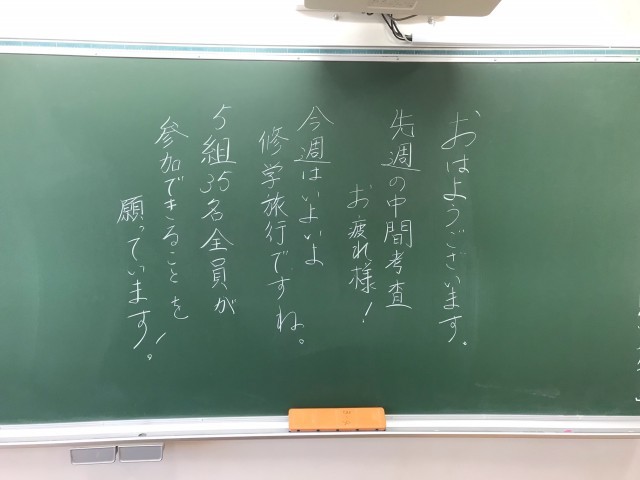 おはようございます。
先週の中間考査
お疲れ様!
今週はいよいよ
修学旅行ですね。
5組35名全員が
参加できることを
願っています!